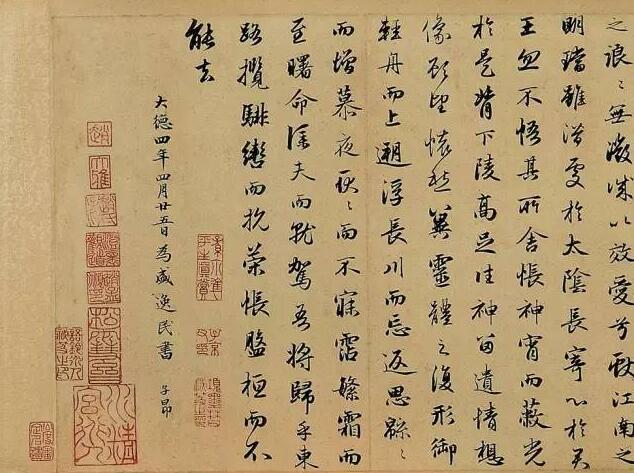 之浪〻無微情以效愛兮獻江南之
明璫雖潛處於太陰長寄心於君
王忽不悟其所舍悵神宵而蔽光
於是背下陵高足往神留遺情想
像顧望懷愁冀靈體之復形御
輕舟而上遡浮長川而忘返思緜〻
而增慕夜耿〻而不寐霑繁霜而
至曙命僕夫而就駕吾將歸乎東
路攬騑轡而抗策悵盤桓而不
能去
大德四年四月廿五日為盛逸民書 子昂